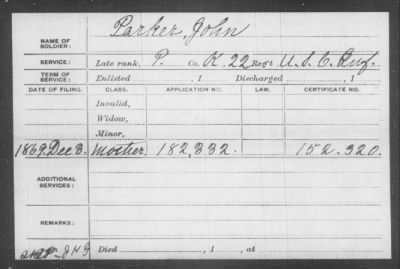 NAME OF SOLDIER: Parker, John
SERVICE: Late rank, P. Co. K, 22 Reg't U.S.C. Inf.
TERM OF SERVICE: Enlisted , 1 Discharged , 1
DATE OF FILING. CLASS. APPLICATION NO. LAW. CERTIFICATE NO.
Invalid,
Widow,
Minor,
1869. Dec 3. Mother. 182,332. 152.320.
ADDITIONAL SERVICES:
REMARKS:
Died , 1 , at